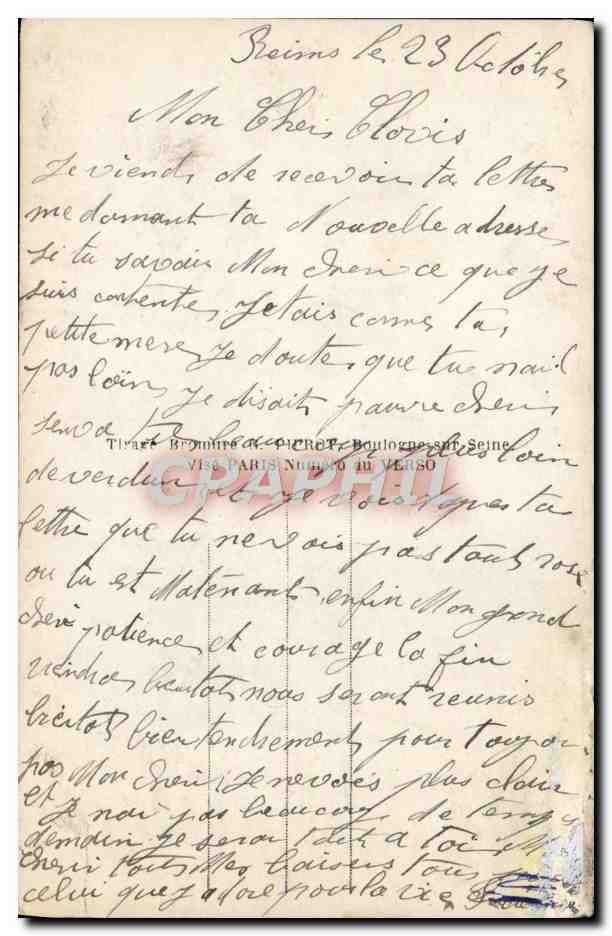 Reims le 23 Octobre
Mon Cheri Clovis
Je viends de recevoir ta lettre
me donnant ta Nouvelle adresse
si tu savais Mon cheri ce que je
suis contente, Jetais comme ta
petite mere Je doutes que tu
pas loin Je disait pauvre cheri
plus loin
Tirage Bromure R. GUERET, Boulogne-sur-Seine
Visé PARIS Numéro au VERSO
de verdun et je vois apres ta
CPAPHIL
lettre que tu ne vois pas tout rose
ou tu est Matenants enfin Mon grand
cheri patience et courage la fin
viendra bientot nous seront reunis
bientot bien tendrement pour toujour
pas Mon cheri Je ne vois plus clair
et Je nai pas beaucoup de temps
demain je serai tout a toi
cheri tout Mes baisers tous
celui que J adore pour la vie